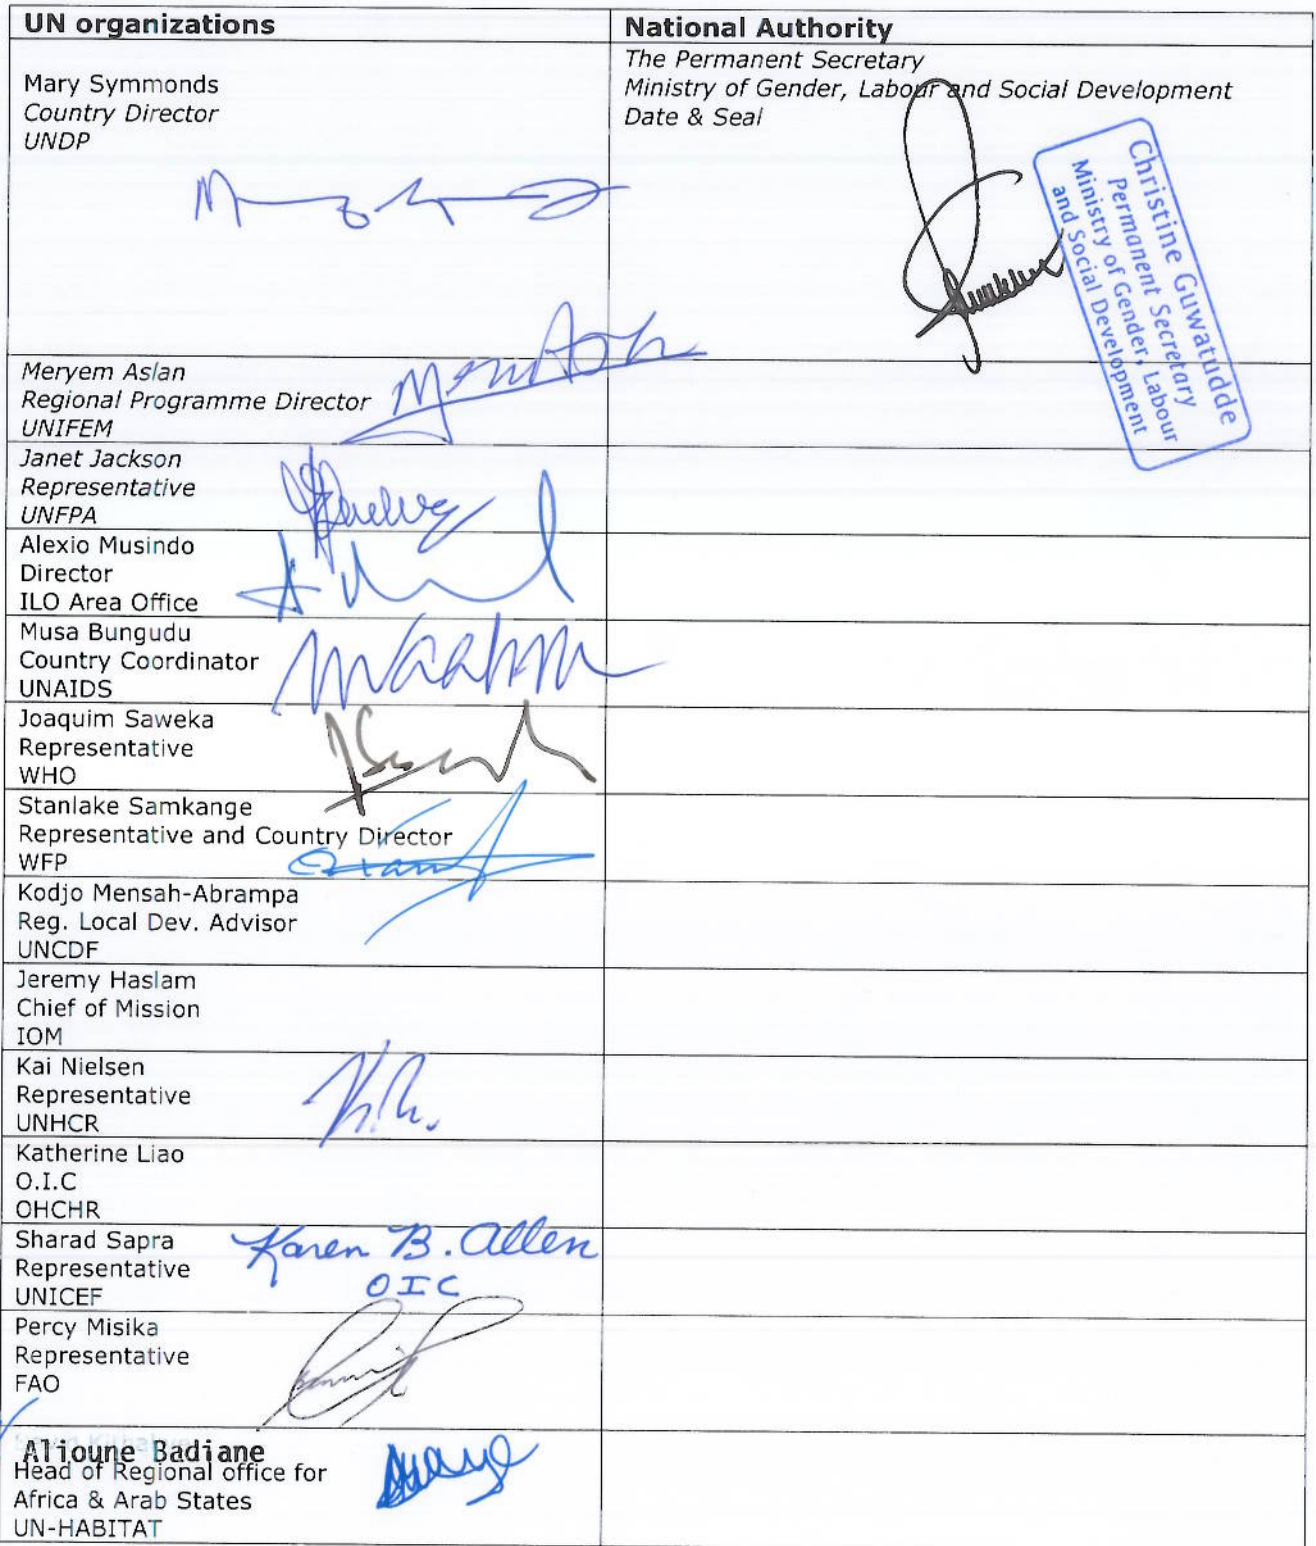 UN organizations
National Authority
Mary Symmonds
Country Director
UNDP
The Permanent Secretary
Ministry of Gender, Labour and Social Development
Date & Seal
Christine Guwatudde
Permanent Secretary
Ministry of Gender, Labour
and Social Development
Meryem Aslan
Regional Programme Director
UNIFEM
Janet Jackson
Representative
UNFPA
Alexio Musindo
Director
ILO Area Office
Musa Bungudu
Country Coordinator
UNAIDS
Joaquim Saweka
Representative
WHO
Stanlake Samkange
Representative and Country Director
WFP
Kodjo Mensah-Abrampa
Reg. Local Dev. Advisor
UNCDF
Jeremy Haslam
Chief of Mission
IOM
Kai Nielsen
Representative
UNHCR
Katherine Liao
O.I.C
OHCHR
Sharad Sapra
Representative
UNICEF
Karen B. Allen
OIC
Percy Misika
Representative
FAO
Alioune Badiane
Head of Regional office for
Africa & Arab States
UN-HABITAT